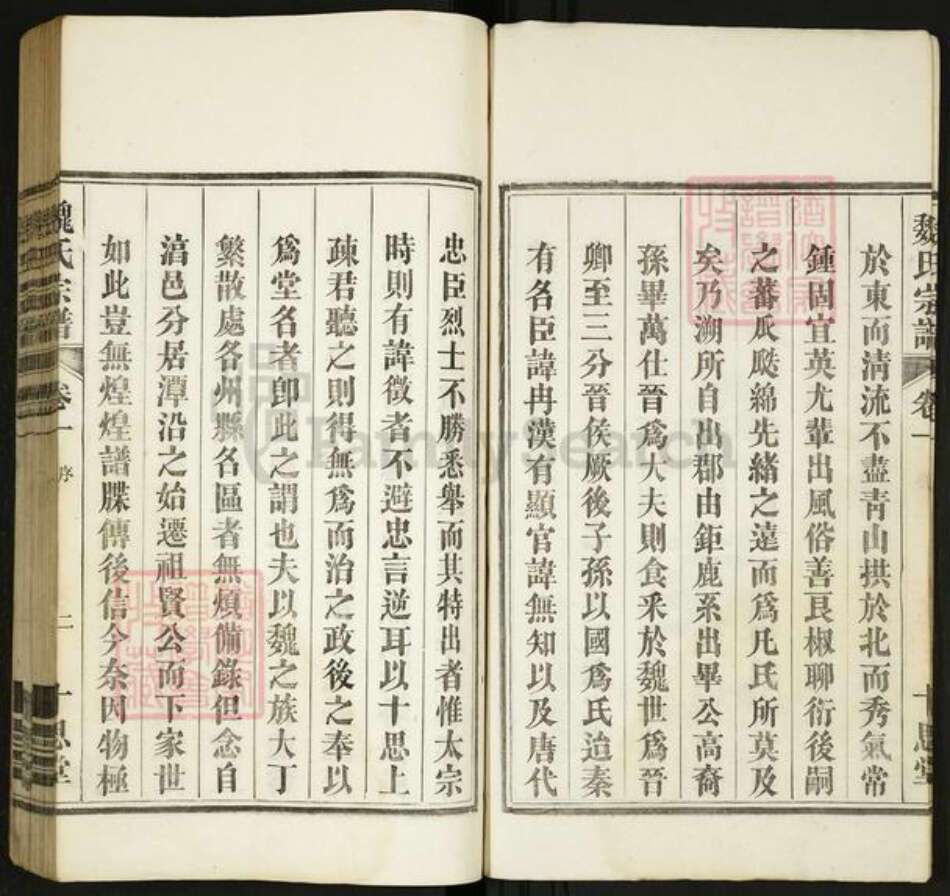 魏氏宗譜 卷一 十思堂
於東而清流不盡青山拱於北而秀氣常
鍾固宜英尤輩出風俗善良椒聊衍後嗣
之蕃瓜瓞綿先緒之遠而為凡氏所莫及
矣乃溯所自出郡由鉅鹿系出畢公高裔
孫畢萬仕晉為大夫則食采於魏世為晉
卿至三分晉侯厥後子孫以國為氏迨秦
有各臣諱冉漢有顯官諱無知以及唐代
忠臣烈士不勝悉舉而其特出者惟太宗
時則有諱徵者不避忠言逆耳以十思上
疎君聽之則得無為而治之政後之奉以
為堂名者卽此之謂也夫以魏之族大丁
繁散處各州縣名區者無煩備錄但念自
滈邑分居潭沿之始遷祖賢公而下家世
如此豈無煌煌譜牒傳後信今奈因物極
魏氏宗譜 卷一 序 二 十思堂
FamilySearch